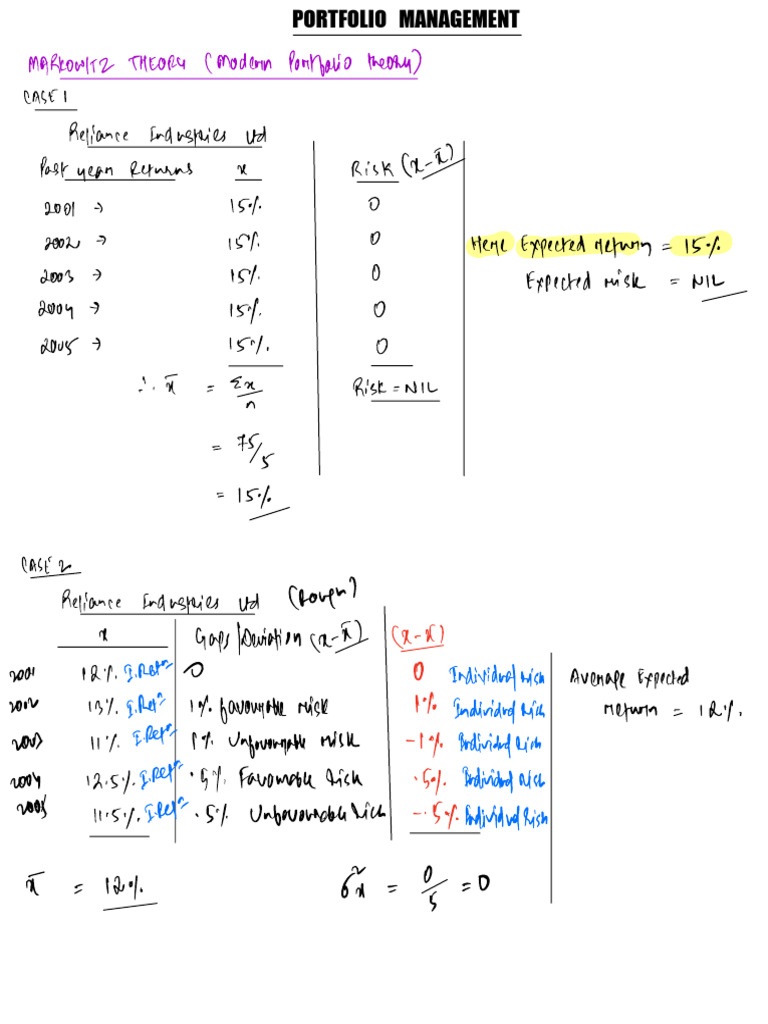 PORTFOLIO MANAGEMENT
MARKOWITZ THEORY (Modern Portfolio theory)
CASE 1
Reliance Industries Ltd
Past year Returns x Risk (x-x̄)
2001 → 15% 0
2002 → 15% 0 Here Expected return = 15%
2003 → 15% 0 Expected risk = NIL
2004 → 15% 0
2005 → 15% 0
∴ x̄ = Σx/n Risk = NIL
= 75/5
= 15%
CASE 2
Reliance Industries Ltd (Rough)
x Gaps/Deviation (x-x̄) (x-x̄)
2001 12% I.Retⁿ 0 0 Individual risk Average Expected
2002 13% I.Retⁿ 1% favourable risk 1% Individual Risk return = 12%.
2003 11% I.Retⁿ 1% Unfavourable risk -1% Individual Risk
2004 12.5% I.Retⁿ .5% Favourable Risk .5% Individual Risk
2005 11.5% I.Retⁿ .5% Unfavourable Risk -.5% Individual Risk
x̄ = 12% σ²x = 0/5 = 0